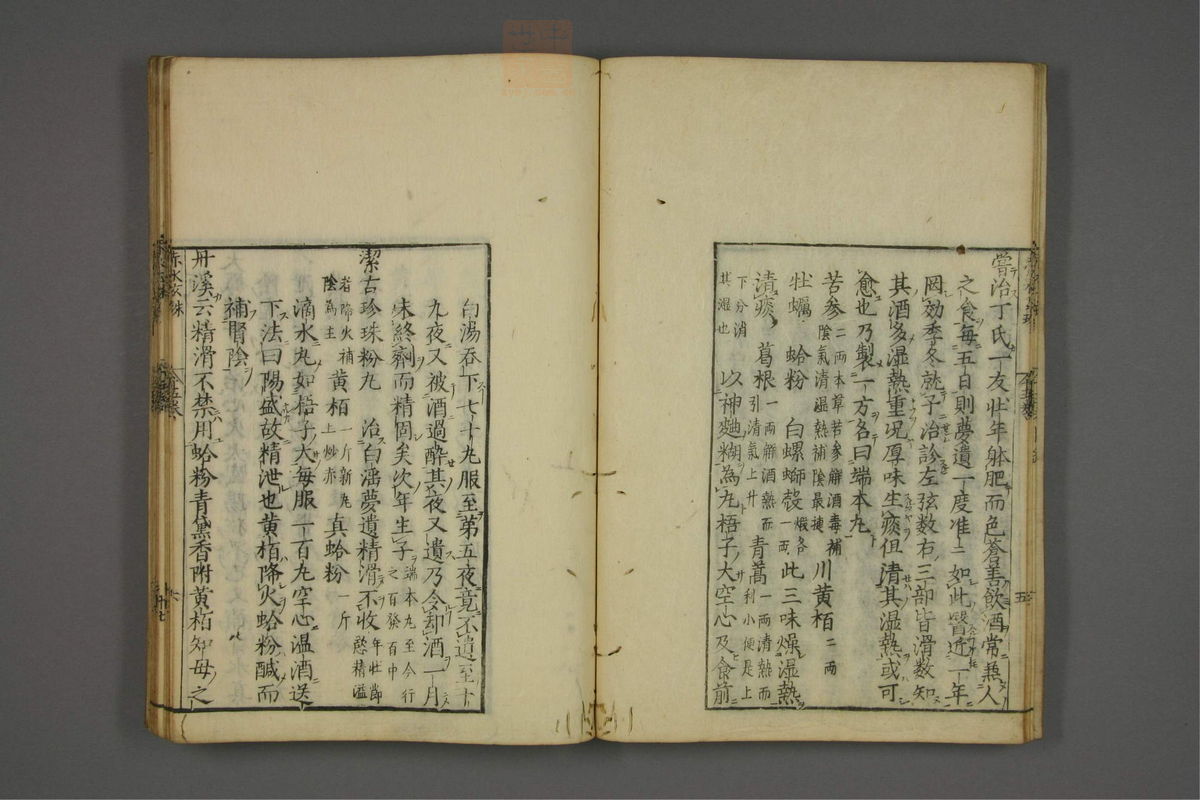 嘗治丁氏一友壮年躰肥而色蒼善飲酒常無人
之食每五日則夢遺一度准二如此醫近一年
罔効季冬就予治診左弦数右三部皆滑数知
其酒多湿熱重况厚味生痰但清其湿熱或可
愈也乃製一方名曰端本丸
苦参二两本草苦参解酒毒補陰氣清湿熱補陰最捷 川黄栢二两
牡蠣 蛤粉 白螺螄殻煅各一两 此三味燥湿熱
清痰 葛根一两解酒熱而引清氣上升 青蒿一两清熱而利小便是上
下分消其湿也 以神麯糊為丸梧子大空心及食前
白湯吞下七十丸服至第五夜竟不遺至十
九夜又被酒過醉其夜又遺乃令却酒一月
味終劑而精固矣次年生子端本丸至今行之百發百中
潔古珍珠粉丸 治白滛夢遺精滑不收年壮節慾精溢
者降火補陰為主 黄栢一斤新瓦上炒赤 真蛤粉一斤
滴水丸如梧子大每服一百丸空心温酒送
下法曰陽盛故精泄也黄栢降火蛤粉鹹而
補腎陰
丹溪云精滑不禁用蛤粉青黛香附黄栢知母之
赤水玄珠